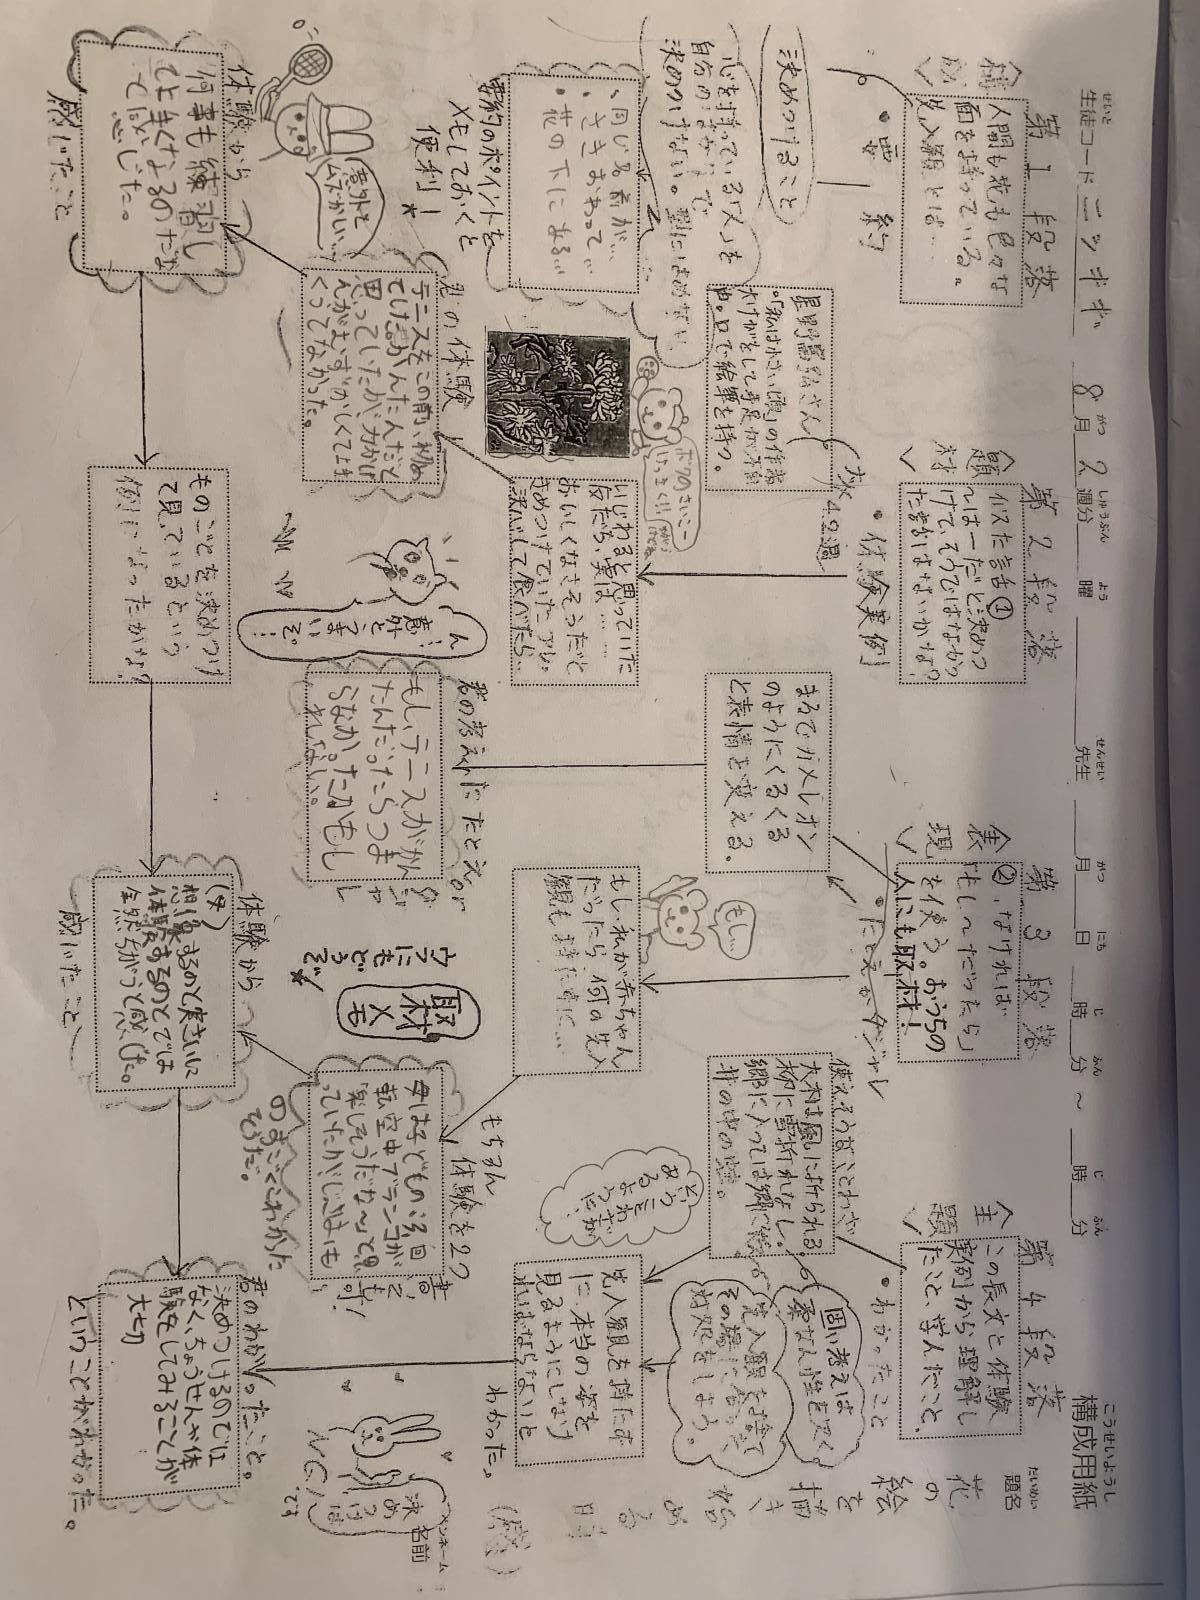 構成用紙
こうせいようし
生徒コード ニッキギ 8月2週分 曜 先生 月 日 時 分 ~ 時 分
せいと がつ しゅうぶん よう せんせい がつ にち じ ふん じ ふん
題名
だいめい
花の
絵を
描き
始め
る日
(感)
名前
ペンネーム
決めつけは
NG!
です
第1段落
<構成>
人間も花も色々な
面を持っている。
先入観とは…
・要約
決めつけること
心を持っている「人」を
自分のなかで
決めつけない。型にはめない
・同じ名前が…
・さきおわって…
・花の下にある…
要約のポイントを
メモしておくと
便利!
星野富弘さん
・「私は小さい頃」の作者
・大けがをして手足が不自
由。口で絵筆を持つ。
ボクのさいこー
けっさく!!
君の体験
テニスをこの前、初め
てしけどかんたんだと
思っていたが、力かげ
んがむずかしくて上手
くってなかった。
意外と
ムズかしい…
体験から
何事も練習し
て上手くなるのだな
て感じた。
感じたこと
第2段落
<題材>
似た話①
「~は…だ」と決めつ
けて、そうではなかっ
た話はないかな?
・体験実例
次4.2週
いじわると思っていた
友だち、実は……
おいしくなさそうだと
きめつけていたアレ。
決心して食べたら…
ん…
意外と
うまいぞ…
まるでカメレオン
のようにくるくる
と表情を変える。
君の考えたたとえ。or
ダジャレ
もし、テニスがかん
たんだったらつま
らなかったかもし
れない。
ものごとを決めつけ
て見ているとい
例になったかな?
第3段落
<表現>
②、なければ
「もし~だったら」
を使う。おうちの
人にも取材!
・たとえorダジャレ
もし…
もし、私が赤ちゃん
だったら何の先入
観も持たずに…
取材
メモ
ウラにもどうぞ
もちろん
体験を2つ
書いても可!
母は子どもの頃回
転空中ブランコが
楽しそうだな~と思
っていたが、じつはも
のすごくこわかった
そうだ。
体験から
(母)
想像するのと実さいに
体験するのとでは
全然ちがうと感じた。
感じたこと
第4段落
<主題>
この長文と体験
実例から理解し
たこと、学んだこと。
・わかったこと
使えそうなことわざ
大木は風に折られる
柳に雪折れなし。
郷に入っては郷に従う
井の中の蛙。
固い考えは
柔なん性を欠く
先入観を捨て
その場に合った
対処をしよう。
先入観を持たず
に、本当の姿を
見るようにしなけ
ればならないと
わかった。
君のわかったこと。
決めつけるのでは
なく、ちょうせんや体
験をしてみることが
大切
ということがわかった。